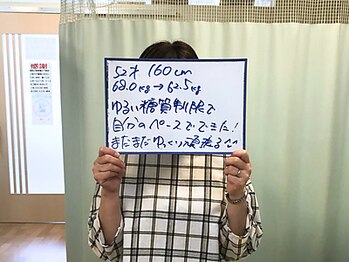 感謝
52才 160cm
68.0kg→62.5kg
ゆるい糖質制限で
自分のペースでできた!
まだまだゆっくり頑張る^^